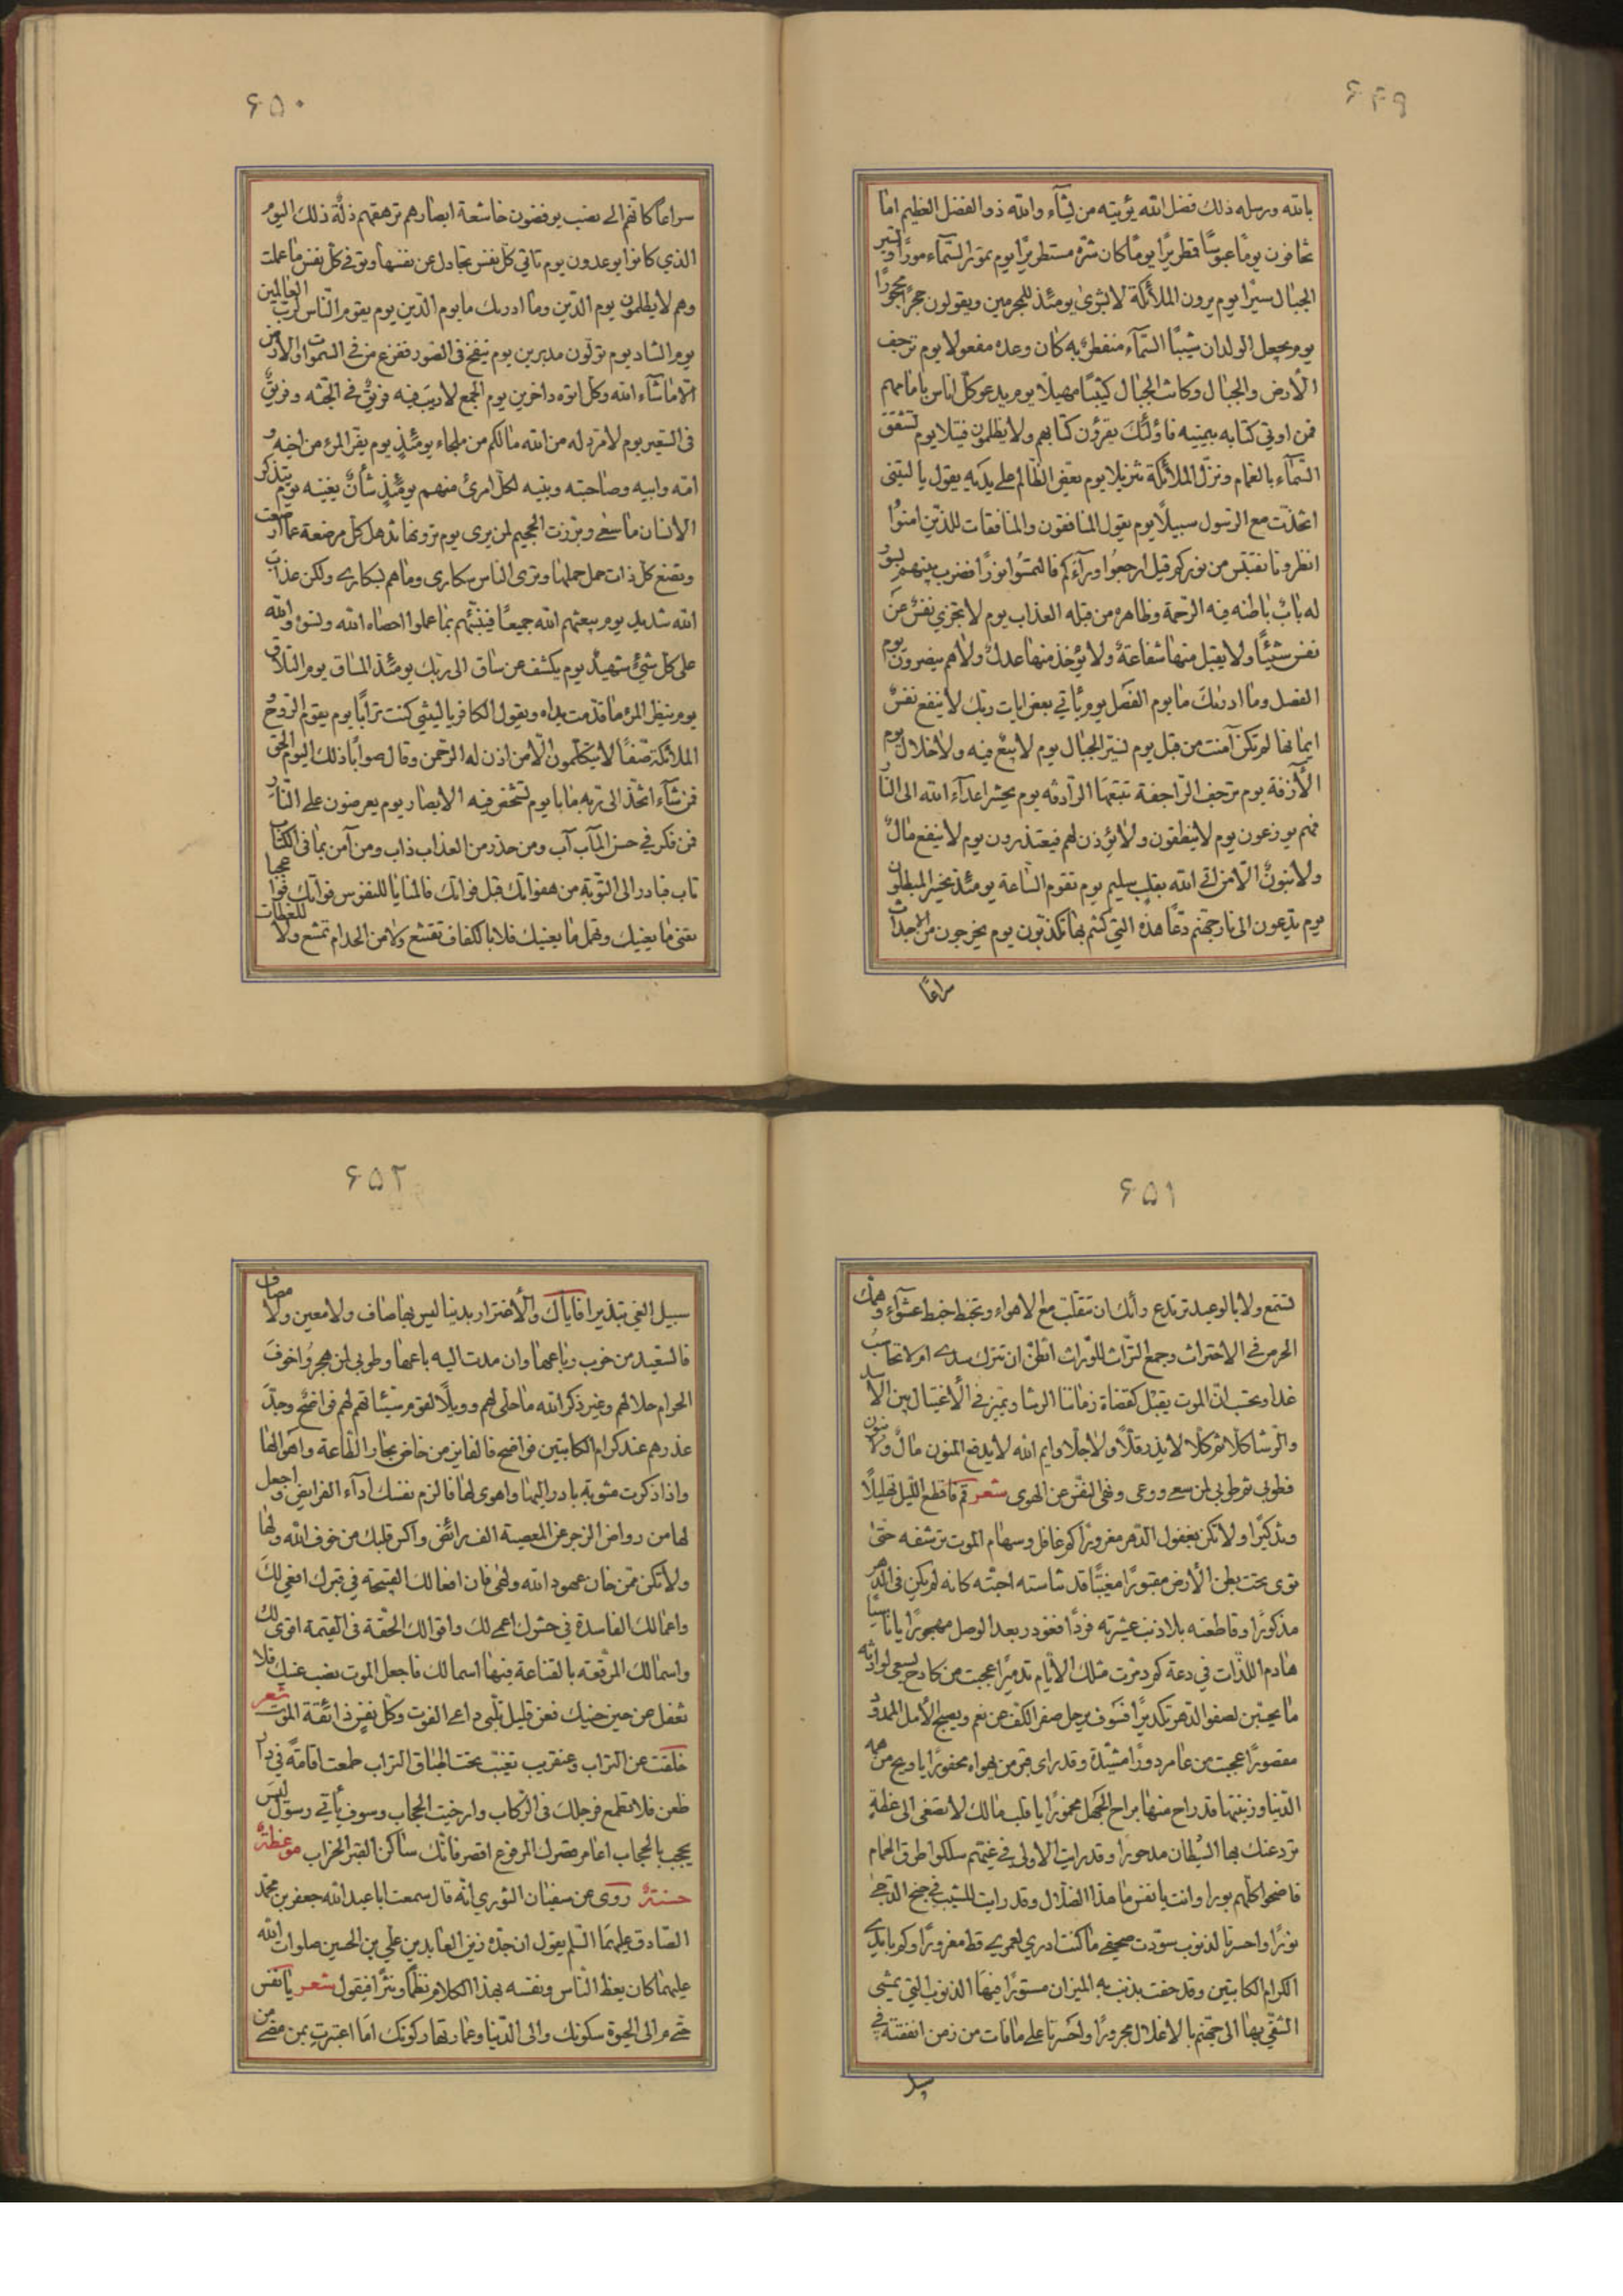 ۶۴۹
بالله ورسله ذلك فضل الله يؤتيه من يشآء والله ذو الفضل العظيم اما
تخافون يومًا عبوسًا قمطريرًا يومًا كان شرّه مستطيرًا يوم تمور السّمآء مورًا وتسير
الجبال سيرًا يوم يرون الملائكة لا بشرىٰ يومئذ للمجرمين ويقولون حجرًا محجورًا
يوم يجعل الولدان شيبًا السّمآء منفطرٌ به كان وعده مفعولا يوم ترجف
الأرض والجبال وكانت الجبال كثيبًا مهيلًا يوم يدعو كلّ اناس بامامهم
فمن اوتي كتابه بيمينه فاولئك يقرؤن كتابهم ولا يظلمون فتيلا يوم تشقق
السّمآء بالغمام ونزّل الملائكة تنزيلا يوم يعض الظالم على يديه يقول يا ليتنى
اتّخذت مع الرّسول سبيلًا يوم يقول المنافقون والمنافقات للذين امنوا
انظرونا نقتبس من نوركم قيل ارجعوا ورآءكم فالتمسوا نورًا فضرب بينهم بسور
له بابٌ باطنه فيه الرّحمة وظاهره من قبله العذاب يوم لا تجزي نفسٌ عن
نفس شيئًا ولا يقبل منها شفاعةٌ ولا يؤخذ منها عدلٌ ولا هم ينصرون يوم
الفصل وما ادريك ما يوم الفصل يوم يأتي بعض ايات ربّك لا ينفع نفسٌ
ايمانها لم تكن آمنت من قبل يوم نسيّر الجبال يوم لا بيعٌ فيه ولا خلال يوم
الآزفة يوم ترجف الرّاجفة تتبعها الرّادفه يوم يحشر اعدآء الله الى النّار
فهم يوزعون يوم لا ينطقون ولا يؤذن لهم فيعتذرون يوم لا ينفع مالٌ
ولا بنونٌ الّا من اتى الله بقلب سليم يوم تقوم السّاعة يومئذ يخسر المبطلون
يوم يدّعون الى نار جهنم دعّا هذه التي كنتم بها تكذّبون يوم يخرجون من الاجداث
سراعًا
۶۵۰
سراعًا كانّهم الى نصب يوفضون خاشعة ابصارهم ترهقهم ذلّة ذلك اليوم
الذي كانوا يوعدون يوم تأتي كلّ نفس تجادل عن نفسها وتوفّى كلّ نفس ما عملت
وهم لا يظلمون يوم الدّين وما ادريك ما يوم الدّين يوم يقوم النّاس لربّ العالمين
يوم التناد يوم تولّون مدبرين يوم ينفخ فى الصّور ففزع من فى السّموات والارض
الّا ما شآء الله وكلّ اتوه داخرين يوم الجمع لا ريب فيه فريقٌ في الجنّه وفريقٌ
فى السّعير يوم لا مردّ له من الله ما لكم من ملجاء يومئذٍ يوم يفرّ المرء من اخيه و
امّه وابيه وصاحبته وبنيه لكلّ امرئ منهم يومئذٍ شأنٌ يغنيه يوم يتذكر
الانسان ما سعى وبرّزت الجحيم لمن يرى يوم ترونها تذهل كلّ مرضعة عمّا ارضعت
وتضع كلّ ذات حمل حملها وترى الناس سكارى وما هم بسكارى ولكن عذاب
الله شديد يوم يبعثهم الله جميعًا فينبّئهم بما عملوا احصاه الله ونسوه والله
على كل شئ شهيدٌ يوم يكشف عن ساق الى ربّك يومئذ المساق يوم التلاق
يوم ينظر المرء ما قدّمت يداه ويقول الكافر يا ليتني كنت ترابًا يوم يقوم الرّوح و
الملائكة صّفّا لا يتكلّمون الّا من اذن له الرّحمن وقال صوابًا ذلك اليوم الحق
فمن شآء اتّخذ الى ربّه مابا يوم تشخص فيه الابصار يوم يعرضون على النّار
فمن فكر في حسن المآب آب ومن حذر من العذاب ذاب ومن آمن بما فى الكتاب
تاب فبادر الى التّوبة من هفواتك قبل فواتك فالمنايا للنفوس فواتك فوا عجبا
يفنى ما يعنيك وتهمل ما يعنيك فلا بالكفاف تقنع ولا من الحرام تمنع ولا للعظات
۶۵۱
تستمع ولا بالوعيد ترتدع دأبك ان تتقلّب مع الاهواء وتخبط خبط عشوآء وهمّك
الحرص في الاحتراث وجمع التّراث للورّاث اتظنّ ان تترك سدى او لا تحاسب
غدا وتحتسب انّ الموت يقبل كقضاة زماننا الرشا ويميّز في الاغتيال بين الاسد
والرّشا كلّا ثم كلّا لا يذر قلّا ولا جلّا وايم الله لا يدفع المنون مالٌ ولا بنون
فطوبى ثم طوبى لمن سعى ووعى ونهى النّفس عن الهوى شعر قم فاقطع اللّيل تهليلًا
وتذكيرًا ولا تكن بغفول الدّهر مغرورًا كم غافل وسهام الموت ترشفه حتّى
ثوى تحت بطن الأرض مقبورًا مغيّبًا قد تناسته احبّته كانه لم يكن فى الدّهر
مذكورًا وقاطعنه بلا ذنب عشيرته فردًا فغودر بعد الوصل مهجورًا يا ناسيًا
هادم اللذّات في دعة كم دمّرت مثلك الأيام تدميرًا عجبت من كادح يسعى لوارثه
ما يجتبى لصفو الدّهر تكديرًا فسوف يرحل صفر الكفّ عن نعم ويصبح الأمل الممدود
مقصورًا عجبت من عامر دورًا مشيّدة وقد راى قبر من يهواه محفورًا يا ويح من همّه
الدّنيا وزينتها قد راح منها براح الجهل مخمورًا يا قلب ما لك لا تصغى الى عظةٍ
تردعنك بها الشّيطان مدحورًا وقد رايت الاولى في غيّهم سلكوا طرق الحمام
فاضحوا كلّهم بورا وانت يا نفس ما هذا الضّلال وقد رايت للشّيب في جنح الدّجى
نورًا واحسرتا لذنوب سوّدت صحفى ما كنت ادري لعمرى قط مغرورًا وكم بايدى
الكرام الكاتبين وقد خفت بذنب به الميزان مستورًا فيها الذنوب التي يمشى
الشّقيّ بها الى جهنم بالاغلال مجرورًا واحسرتا على ما فات من زمن انفقته فى
سبيل
۶۵۲
سبيل الغي تبذيرا فاياك والأغترار بدنيا ليس بها صاف ولا معين ولا مصاف
فالسّعيد من خرب رباعها وان مدت اليه باعها وطوبى لمن هجروا خوف
الحرام حلالهم وغير ذكر الله ما حلى لهم وويلًا لقوم سيّئاتهم لهم فواضحٌ وجدّ
عذرهم عند كرام الكاتبين فواضح فالفايز من خاض بحار الطّاعة واهوالها
واذا ذكرت مثوبة بادر اليها واهوى لها فالزم نفسك ادآء الفرايض واجعل
لها من رواض الزجر عن المعصية الف رائض واكس قلبك من خوف الله ولها
ولا تكن ممّن خان عهود الله ولهى فان افعالك القبيحة في قبرك افعى لك
واعمالك الفاسدة في حشرك اعمى لك واقوالك الحقّة فى القيمة اقوى لك
واسمالك المرقّعة بالقناعة فيها اسمالك فاجعل الموت نصب عينيك فلا
تغفل عن حين حينك فعن قليل تلبّى داعى الفوت وكلّ نفس ذائقة الموت شعر
خلقت عن التراب وعنقريب تغيّب تحت اطباق التراب طمعت اقامة في دار
ظعن فلا تطمع فرجلك فى الرّكاب وارخيت الحجاب وسوف يأتي رسول ليس
يحجب بالحجاب اعامر قصرك المرفوع اقصر فانّك ساكن القبر الخراب موعظةٌ
حسنةٌ روى عن سفيان الثوري انّه قال سمعت ابا عبد الله جعفر بن محمّد
الصّادق عليهما السّلم يقول ان جدّه زين العابدين علي بن الحسين صلوات الله
عليهما كان يعظ النّاس ونفسه بهذا الكلام نظمًا ونثرًا فيقول شعر يا نفس
حتى م الى الحيوة سكونك والى الدّنيا وعمارتها ركونك امّا اعتبرت بمن مضى من